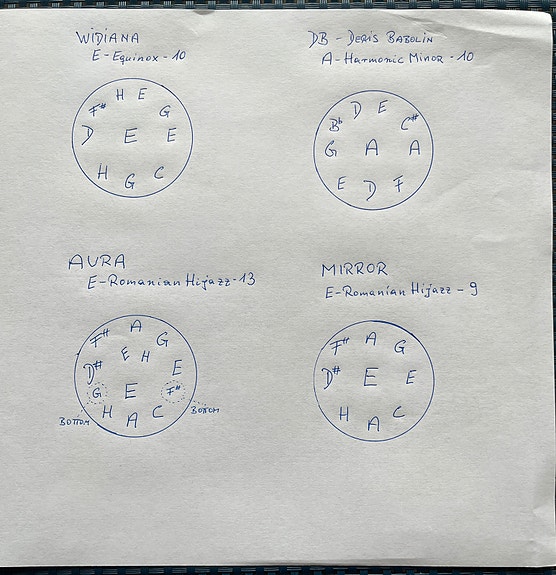 WIDIANA
E-Equinox-10
H E
F# G
D E E
H G C
DB - Deris Babolin
A-Harmonic Minor-10
D E
Bb C#
G A A
E D F
AURA
E-Romanian Hijazz-13
A
F# G
E H
D# E
G E F#
BOTTOM H A C BOTTOM
MIRROR
E-Romanian Hijazz-9
F# A G
D# E E
H A C